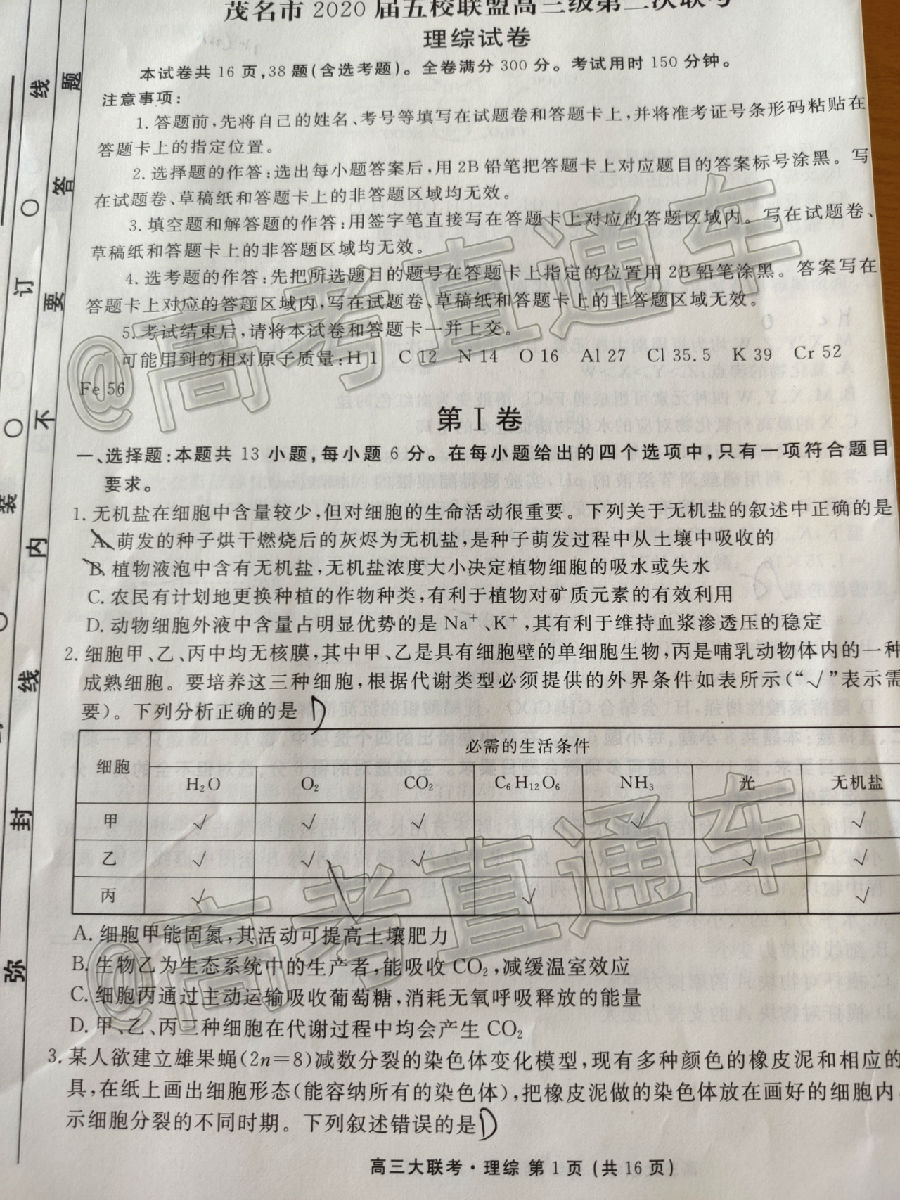 茂名市2020届五校联盟高三级第二次联考
理综试卷
本试卷共16页,38题(含选考题)。全卷满分300分。考试用时150分钟。
注意事项:
1.答题前,先将自己的姓名、考号等填写在试题卷和答题卡上,并将准考证号条形码粘贴在
答题卡上的指定位置。
2.选择题的作答:选出每小题答案后,用2B铅笔把答题卡上对应题目的答案标号涂黑。写
在试题卷、草稿纸和答题卡上的非答题区域均无效。
3.填空题和解答题的作答:用签字笔直接写在答题卡上对应的答题区域内。写在试题卷、
草稿纸和答题卡上的非答题区域均无效。
4.选考题的作答:先把所选题目的题号在答题卡上指定的位置用2B铅笔涂黑。答案写在
答题卡上对应的答题区域内,写在试题卷、草稿纸和答题卡上的非答题区域无效。
5.考试结束后,请将本试卷和答题卡一并上交。
可能用到的相对原子质量:H 1 C 12 N 14 O 16 Al 27 Cl 35.5 K 39 Cr 52
Fe 56
第Ⅰ卷
一、选择题:本题共13小题,每小题6分。在每小题给出的四个选项中,只有一项符合题目
要求。
1.无机盐在细胞中含量较少,但对细胞的生命活动很重要。下列关于无机盐的叙述中正确的是
A.萌发的种子烘干燃烧后的灰烬为无机盐,是种子萌发过程中从土壤中吸收的
B.植物液泡中含有无机盐,无机盐浓度大小决定植物细胞的吸水或失水
C.农民有计划地更换种植的作物种类,有利于植物对矿质元素的有效利用
D.动物细胞外液中含量占明显优势的是Na⁺、K⁺,其有利于维持血浆渗透压的稳定
2.细胞甲、乙、丙中均无核膜,其中甲、乙是具有细胞壁的单细胞生物,丙是哺乳动物体内的一种
成熟细胞。要培养这三种细胞,根据代谢类型必须提供的外界条件如表所示(“√”表示需
要)。下列分析正确的是 D
细胞 必需的生活条件
H₂O O₂ CO₂ C₆H₁₂O₆ NH₃ 光 无机盐
甲 √ √ √ √ √
乙 √ √ √ √ √
丙 √ √ √
A.细胞甲能固氮,其活动可提高土壤肥力
B.生物乙为生态系统中的生产者,能吸收CO₂,减缓温室效应
C.细胞丙通过主动运输吸收葡萄糖,消耗无氧呼吸释放的能量
D.甲、乙、丙三种细胞在代谢过程中均会产生CO₂
3.某人欲建立雄果蝇(2n=8)减数分裂的染色体变化模型,现有多种颜色的橡皮泥和相应的
具,在纸上画出细胞形态(能容纳所有的染色体),把橡皮泥做的染色体放在画好的细胞内
示细胞分裂的不同时期。下列叙述错误的是 D
高三大联考·理综 第1页(共16页)
弥 封 线 内 不 要 答 题
装 订 线
@高考直通车
@高考直通车